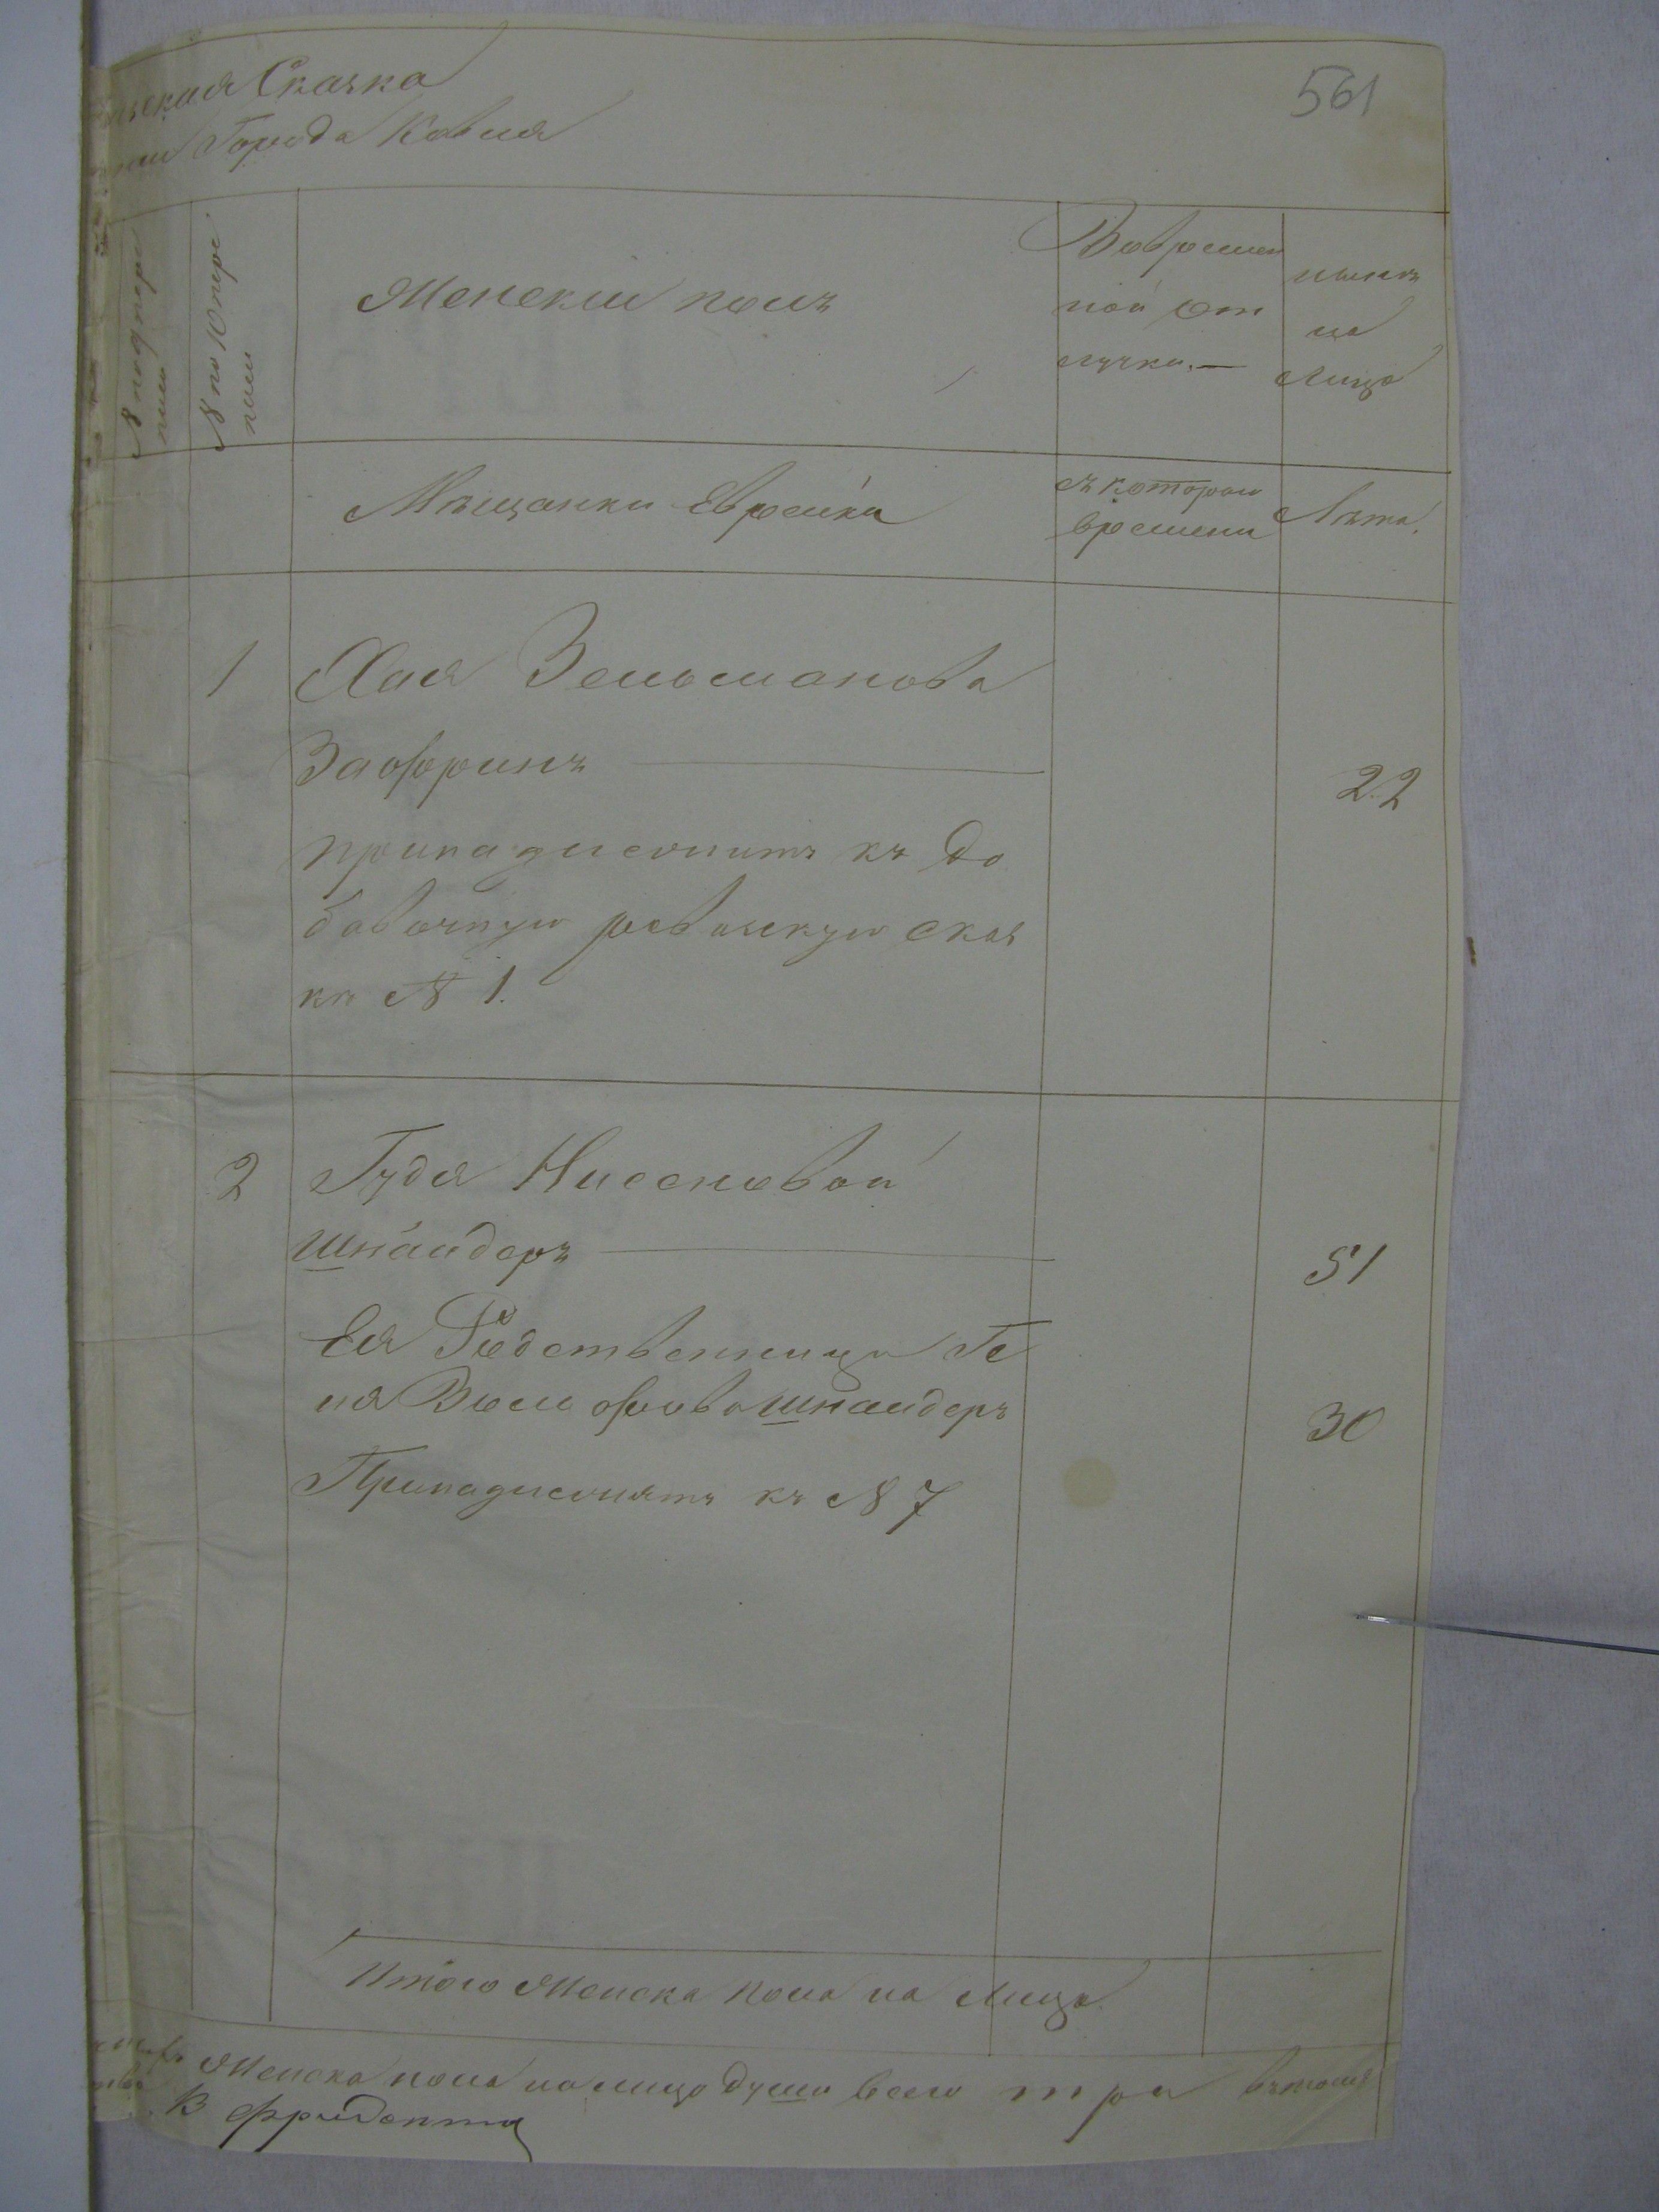 ижская Скаска
561
Города Ковля
№ по 10 пере
писи
Женскiй полъ
Вовремен
ной от
лучки.—
нынѣ
на
лицо
Мѣщанки Еврейки
съ котораго
времени
Лѣта.
1 Хая Зельманова
Зафринъ
22
принадлежитъ къ до
бавочную ревизскую скас
кѣ № 1.
2 Гудя Нисеновой
Шнайдеръ
51
Ея Родственница Ге
ня Вольфова Шнайдеръ
30
Принадлежатъ къ № 7
Итого Женска пола на лицо.
Женска пола налицо души всего три